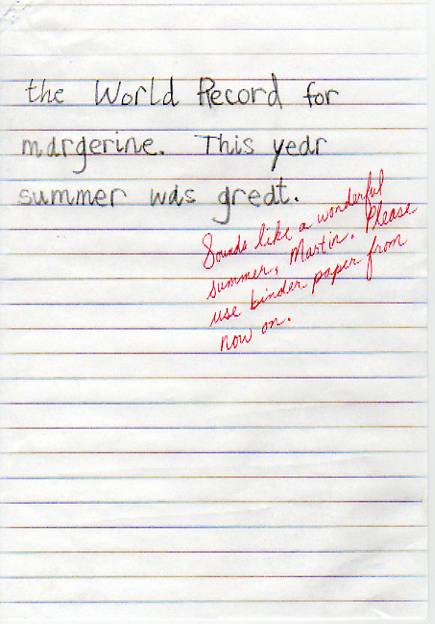 the World Record for
margerine. This year
summer was great.
Sounds like a wonderful
summer, Martin. Please
use binder paper from
now on.